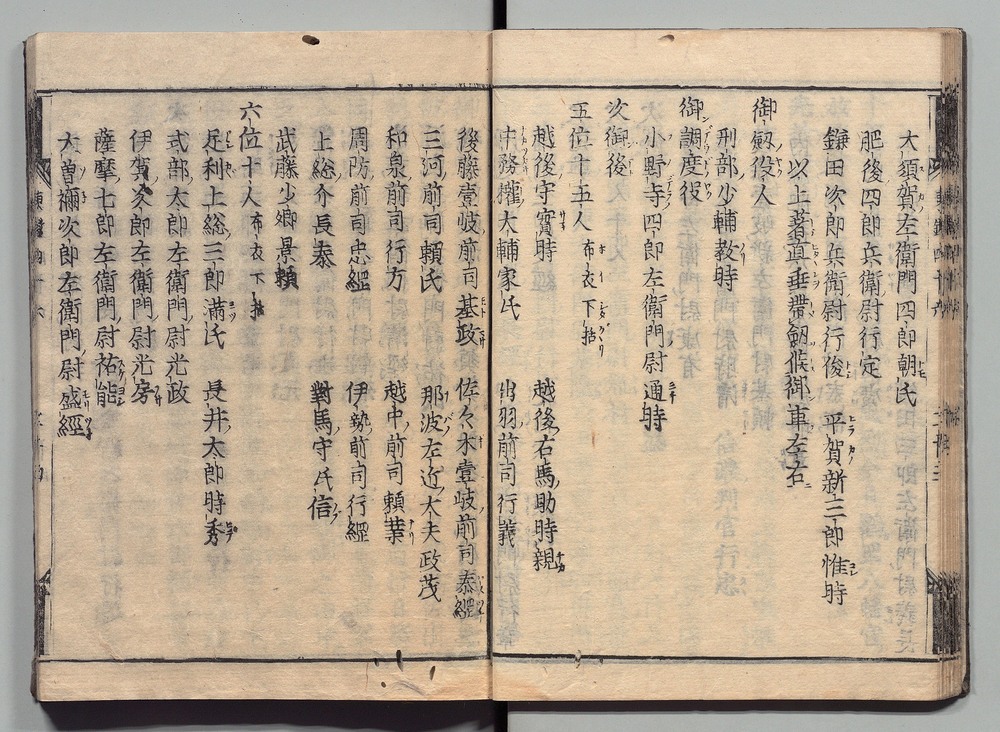 大須賀左衛門四郎朝氏
肥後四郎兵衛尉行定
鎌田次郎兵衛尉行後 平賀新三郎惟時
以上著直垂帶劔候御車左右
御劔役人
刑部少輔教時
御調度役
小野寺四郎左衛門尉通時
次御後
五位十五人 布衣下括
越後守實時 越後右馬助時親
中務權大輔家氏 出羽前司行義
後藤壹岐前司基政 佐々木壹岐前司泰經
三河前司頼氏 那波左近大夫政茂
和泉前司行方 越中前司頼業
周防前司忠經 伊勢前司行經
上総介長泰 對馬守氏信
武藤少卿景頼
六位十人 布衣下括
足利上総三郎満氏 長井太郎時秀
式部太郎左衛門尉光政
伊賀次郎左衛門尉光房
薩摩七郎左衛門尉祐能
大曽禰次郎左衛門尉盛經